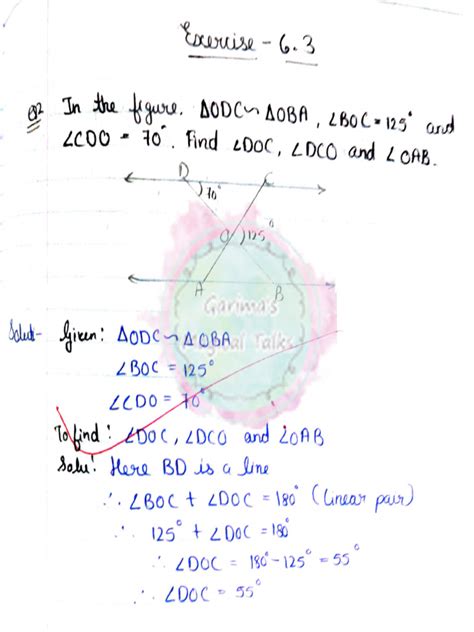 Exercise - 6.3
Q2 In the figure. ΔODC ~ ΔOBA, ∠BOC = 125° and
∠CDO = 70°. Find ∠DOC, ∠DCO and ∠OAB.
D C
70°
O 125°
A B
Garima's
Digital Talks
Solut- Given: ΔODC ~ ΔOBA
∠BOC = 125°
∠CDO = 70°
To find: ∠DOC, ∠DCO and ∠OAB
Solu: Here BD is a line
∴ ∠BOC + ∠DOC = 180° (linear pair)
∴ 125° + ∠DOC = 180°
∴ ∠DOC = 180° - 125° = 55°
∴ ∠DOC = 55°